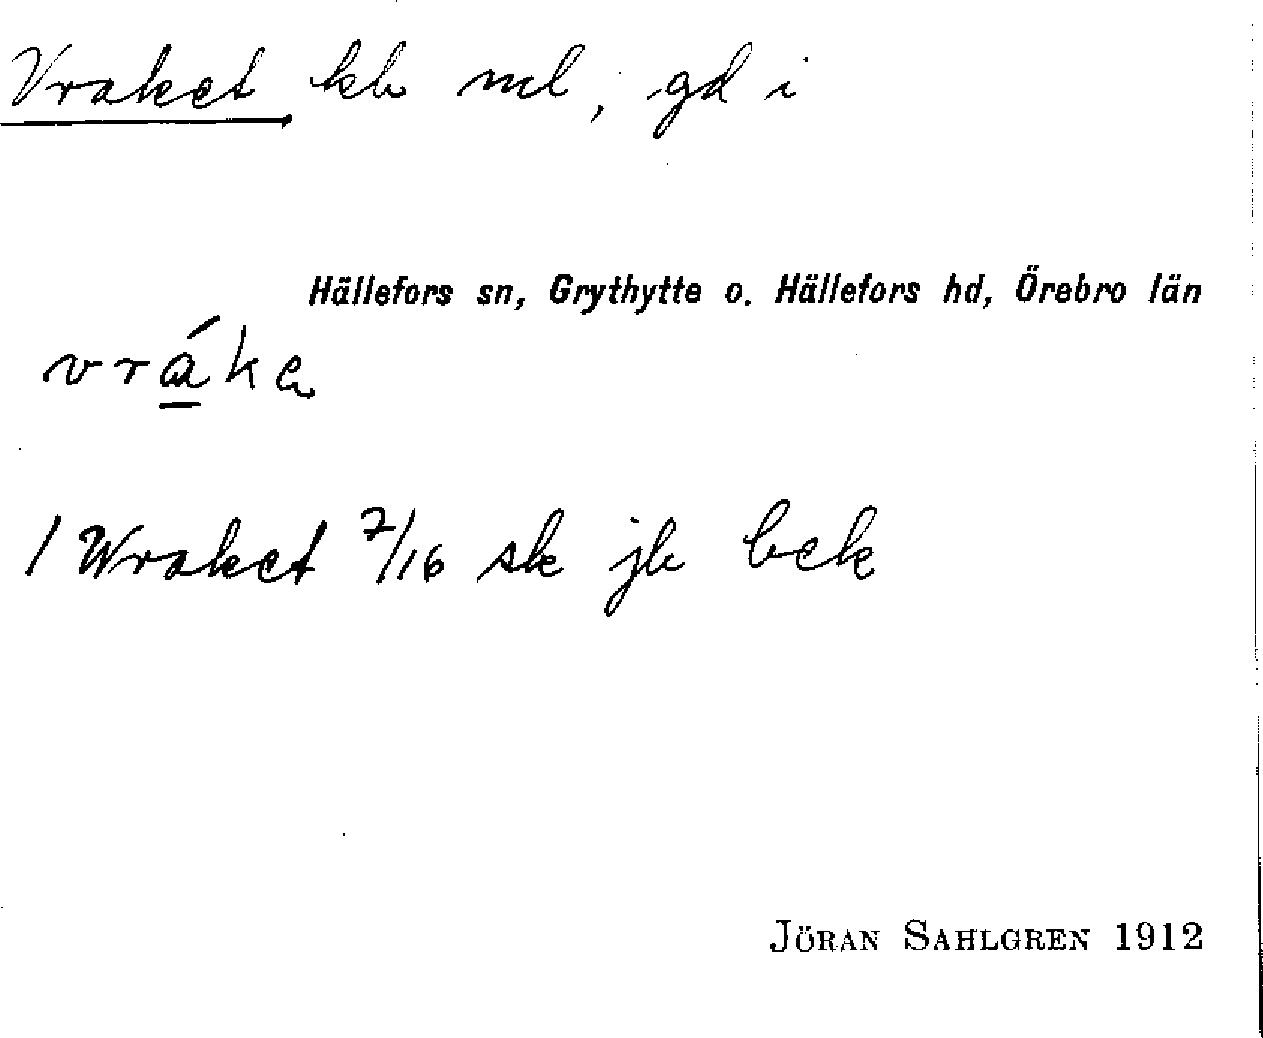 Vraket kb ml, gd i
Hällefors sn, Grythytte o. Hällefors hd, Örebro län
vráka
1 Wraket 7/16 sk jb bek
JÖRAN SAHLGREN 1912